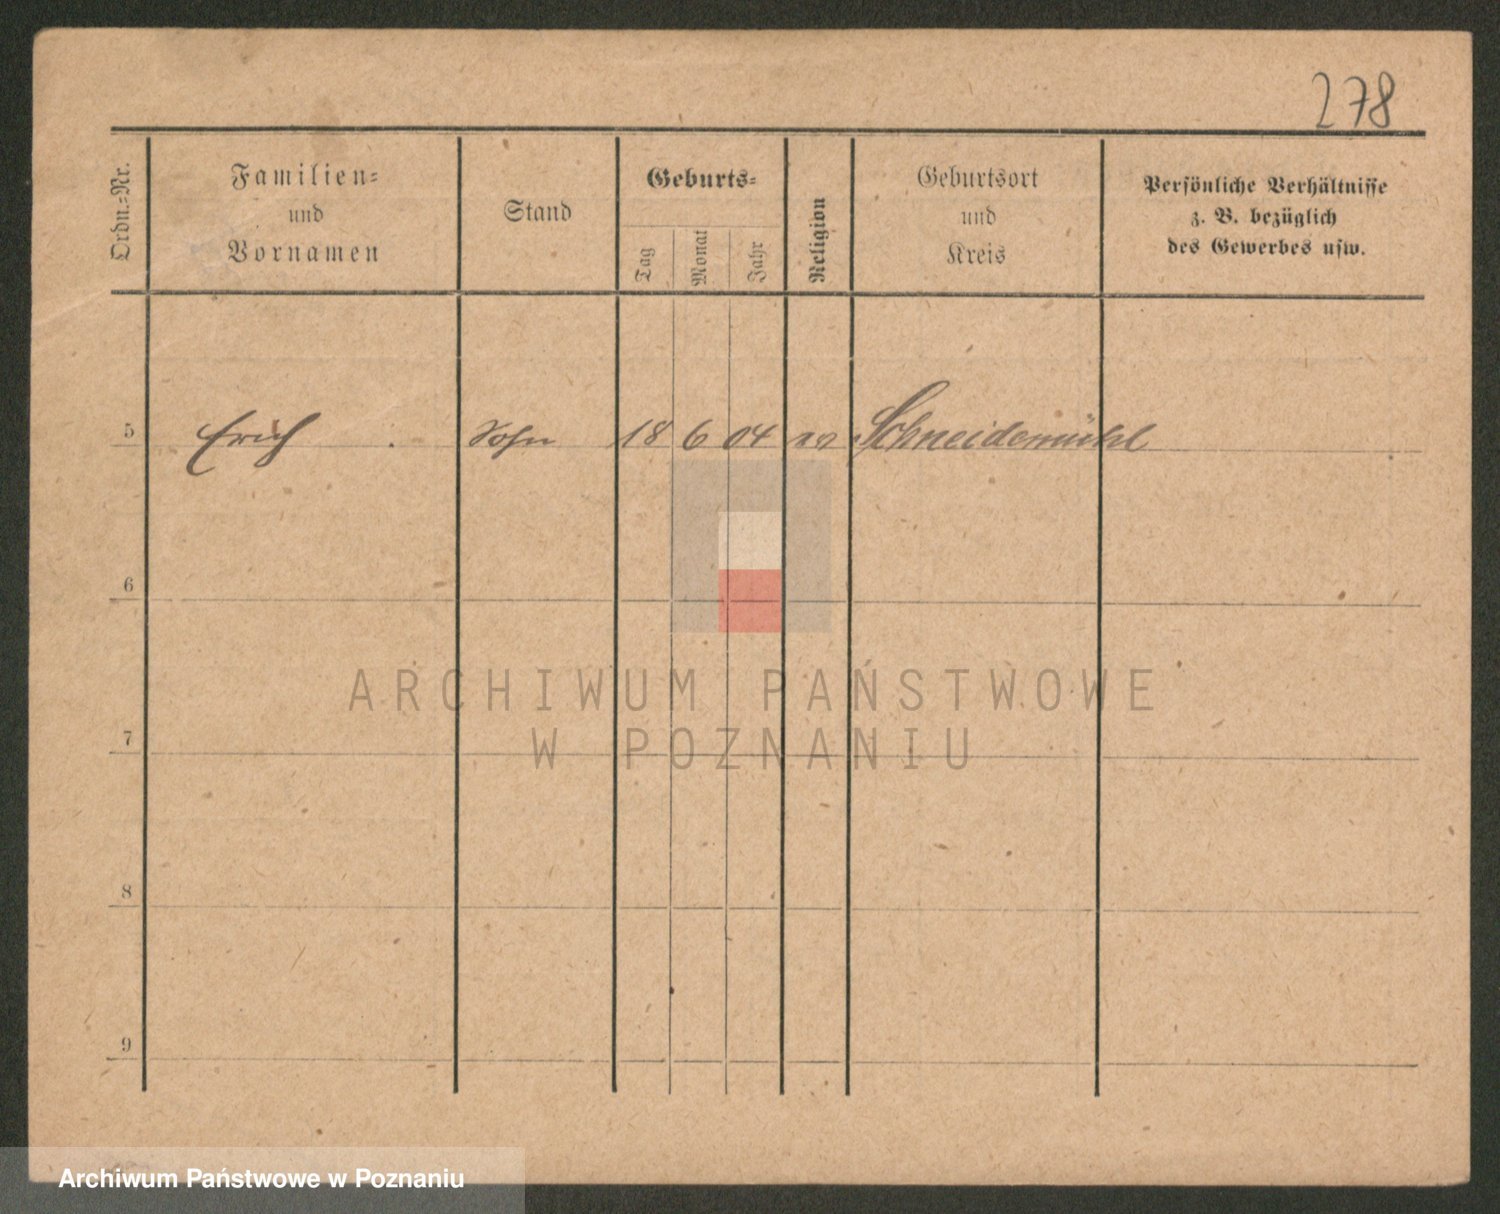 278
Ordn.-Nr.
Familien-
und
Vornamen
Stand
Geburts-
Tag
Monat
Jahr
Religion
Geburtsort
und
Kreis
Persönliche Verhältnisse
z. B. bezüglich
des Gewerbes usw.
5 Erich Sohn 18 6 04 ev Schneidemühl
6
ARCHIWUM PAŃSTWOWE
W POZNANIU
7
8
9
Archiwum Państwowe w Poznaniu